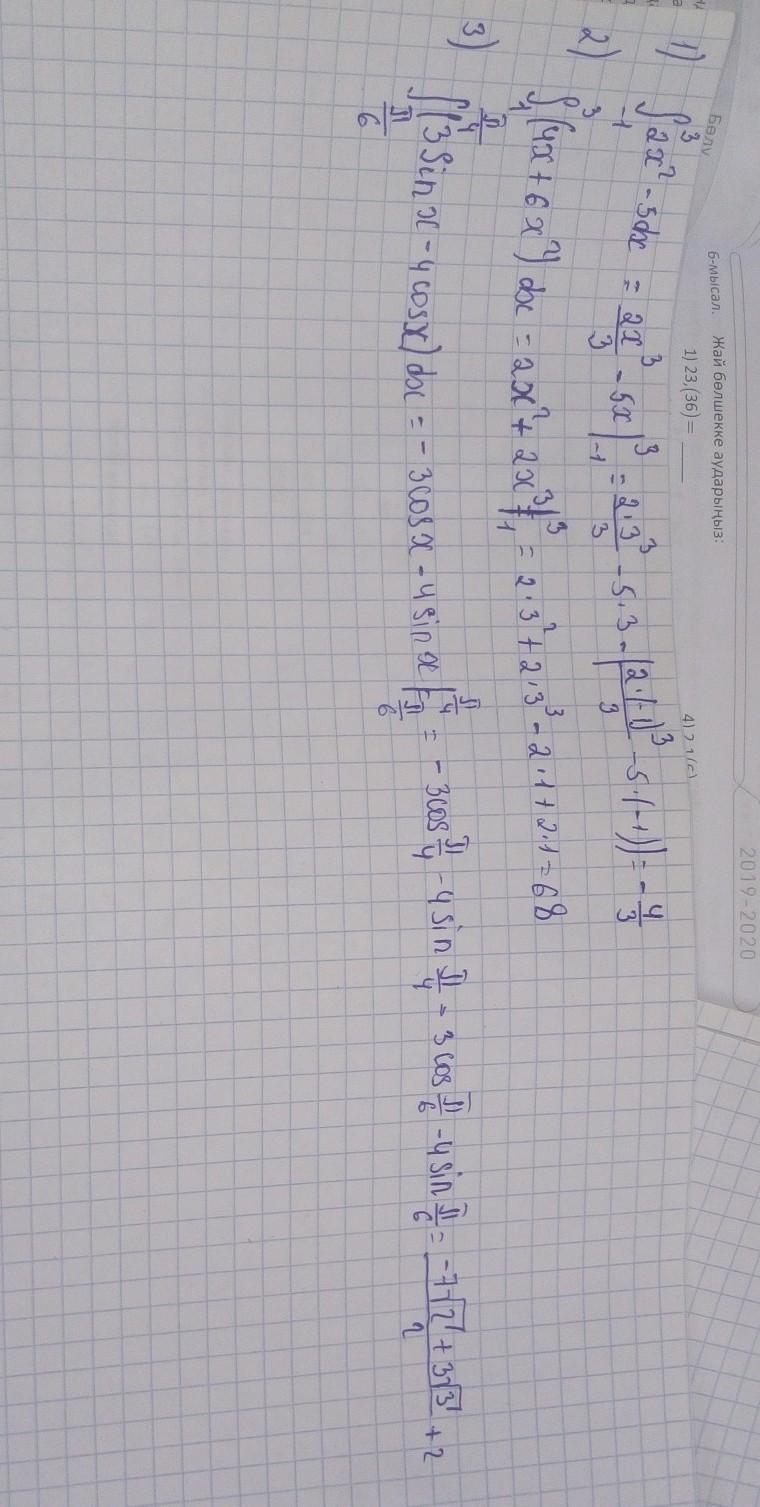 2019-2020
Бөлу
6-мысал. Жай бөлшекке аударыңыз:
1) 23,(36)= ____
1) ∫₋₁³ 2x² - 5dx = 2x³/3 - 5x |₋₁³ = 2·3³/3 - 5·3 - (2·(-1)³/3 - 5·(-1)) = -4/3
2) ∫₁³ (4x + 6x²) dx = 2x² + 2x³ |₁³ = 2·3² + 2·3³ - 2·1 + 2·1 = 68
3) ∫_{π/6}^{π/4} (3 sin x - 4 cos x) dx = - 3 cos x - 4 sin x |_{π/6}^{π/4} = - 3 cos π/4 - 4 sin π/4 - 3 cos π/6 - 4 sin π/6 = (-7√2 + 3√3)/2 + 2